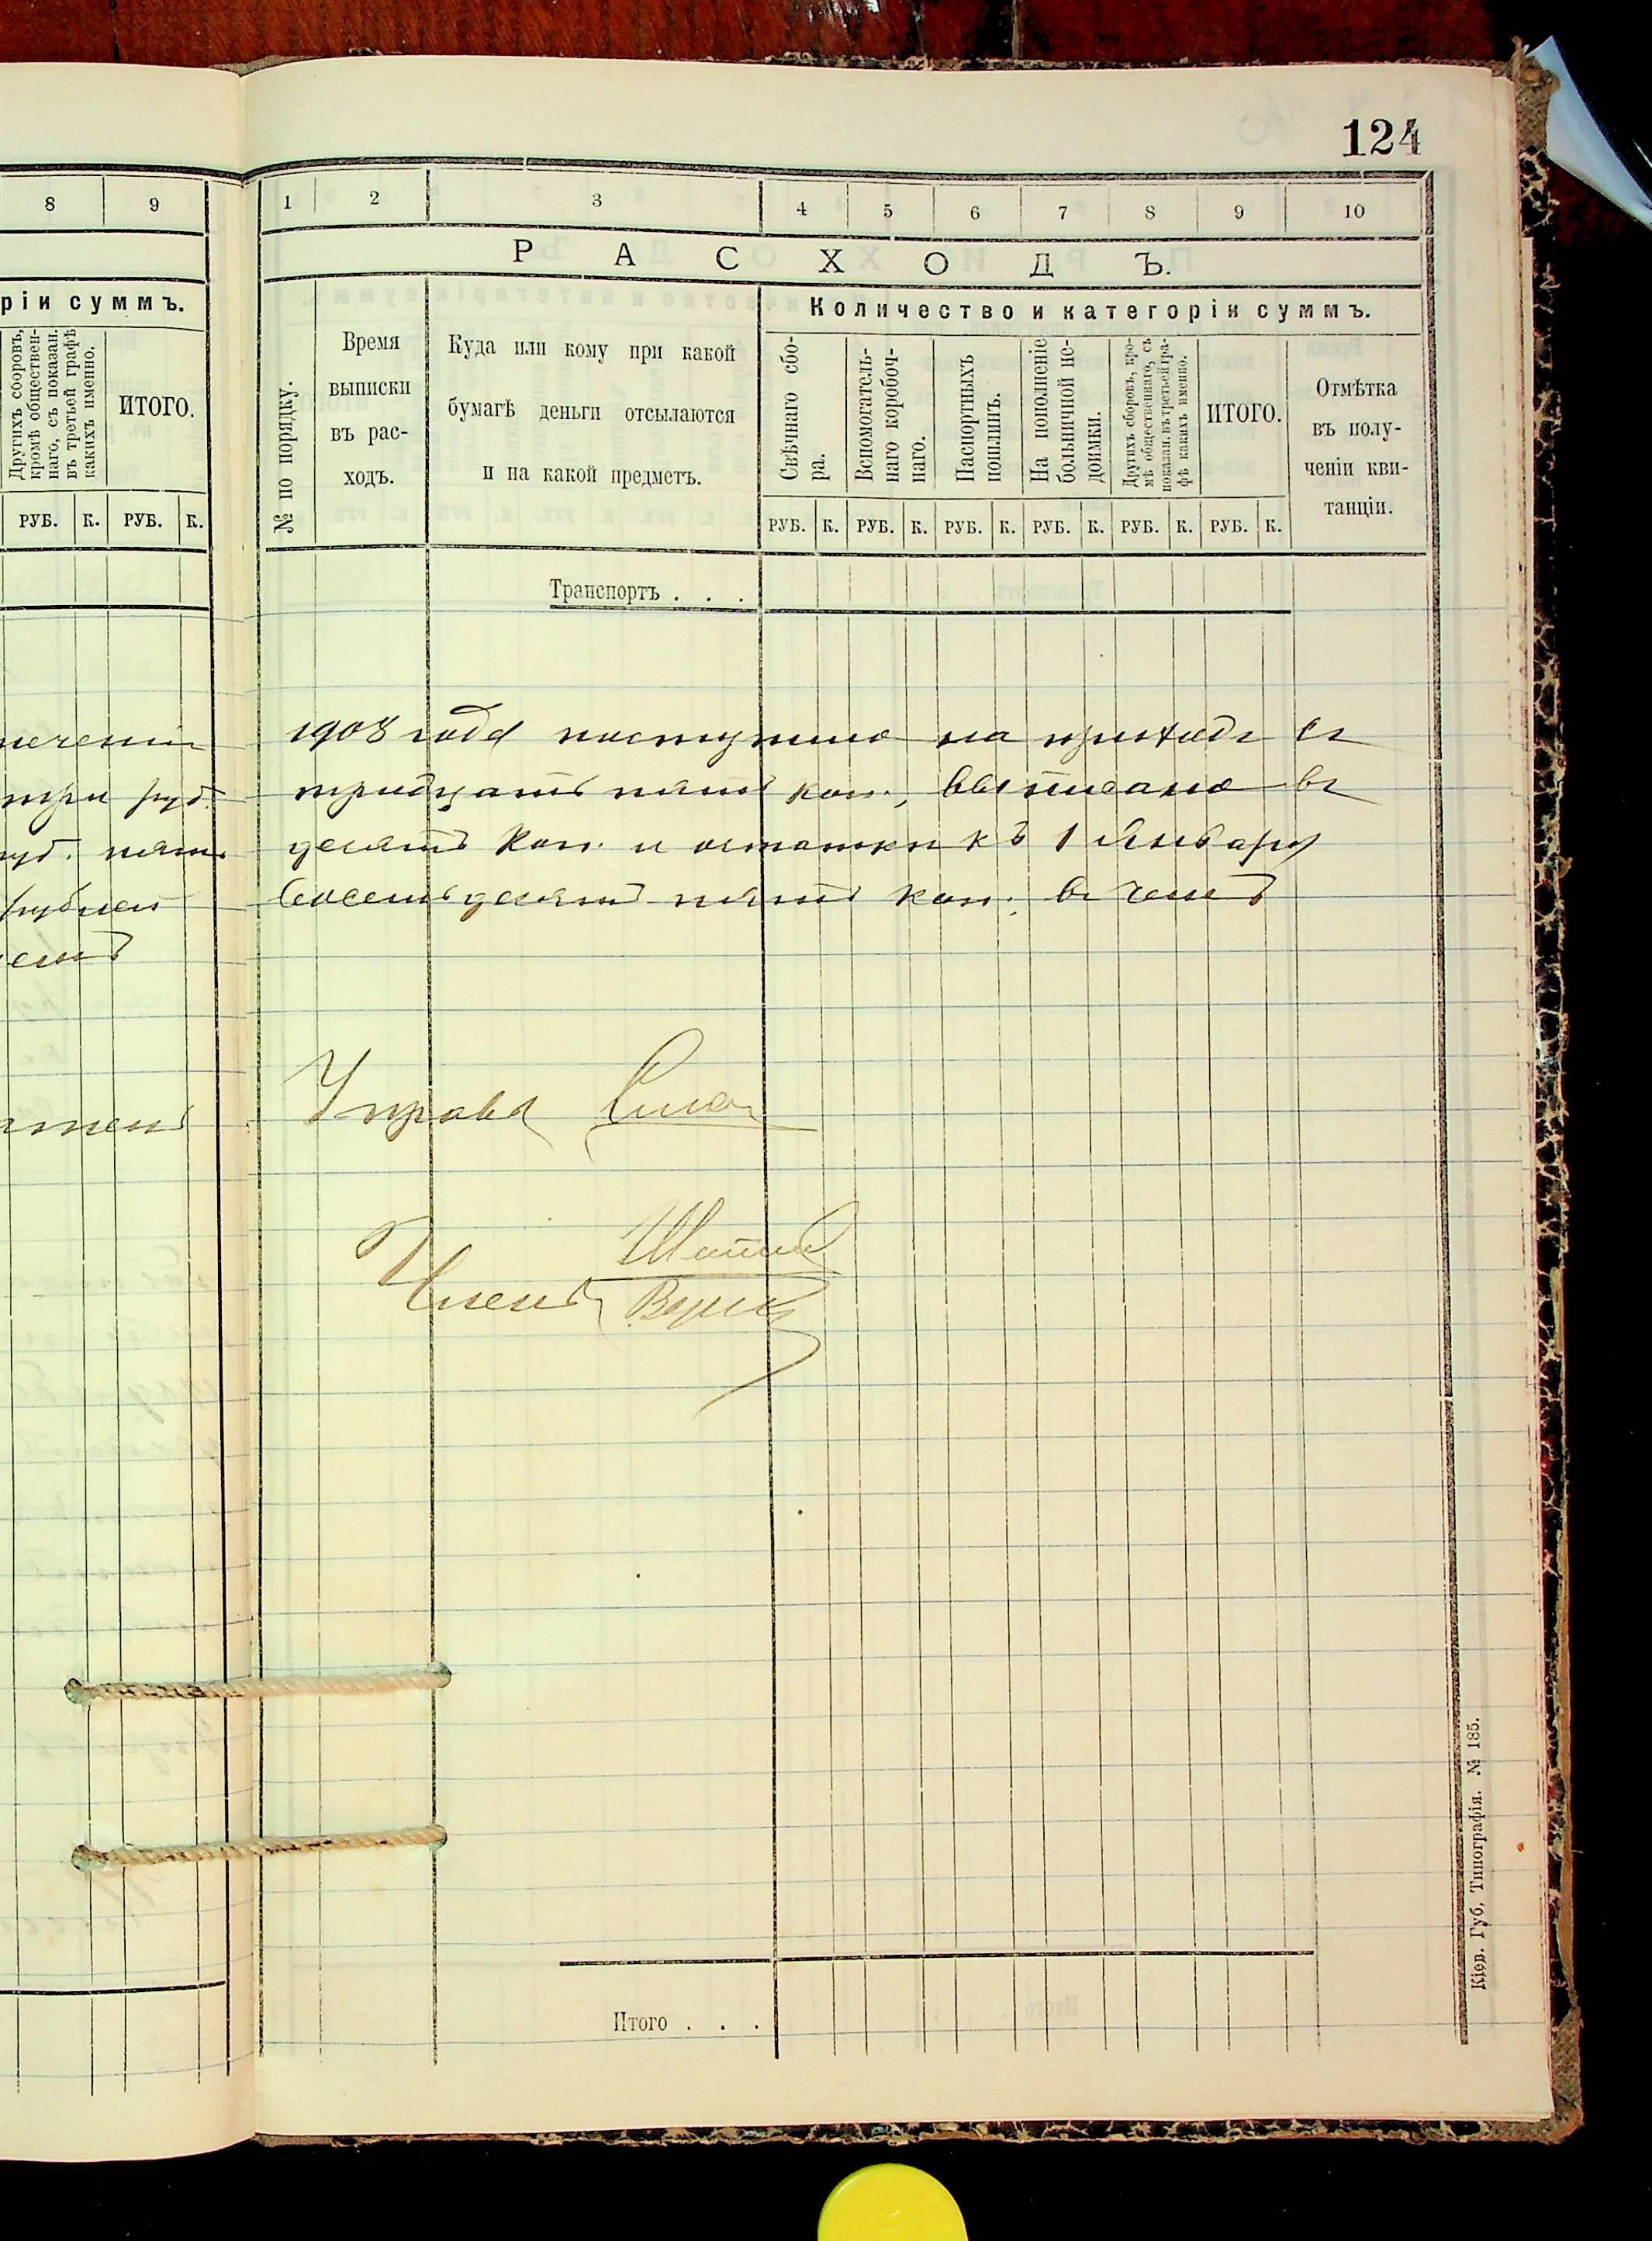 124
8 9
ріи суммъ.
Другихъ сборовъ,
кромѣ обществен-
наго, съ показан.
въ третьей графѣ
какихъ именно.
ИТОГО.
РУБ. К. РУБ. К.
три руб.
рублей
1 2 3 4 5 6 7 8 9 10
РАСХОДЪ.
№ по порядку.
Время
выписки
въ рас-
ходъ.
Куда или кому при какой
бумагѣ деньги отсылаются
и на какой предметъ.
Количество и категоріи суммъ.
Свѣчнаго сбо-
ра.
Вспомогатель-
наго коробоч-
наго.
Паспортныхъ
пошлинъ.
На пополненіе
больничной не-
доимки.
Другихъ сборовъ, кро-
мѣ общественнаго, съ
показан. въ третьей гра-
фѣ какихъ именно.
ИТОГО.
Отмѣтка
въ полу-
ченіи кви-
танціи.
РУБ. К. РУБ. К. РУБ. К. РУБ. К. РУБ. К. РУБ. К.
Транспортъ . . .
1908 года поступило на приходъ съ
тридцать пять коп., выписано въ
десять коп. и остатки къ 1 Января
восемьдесятъ пять коп., въ чемъ
Управа
Члены
Итого . . .
Кіев. Губ. Типографія. № 185.